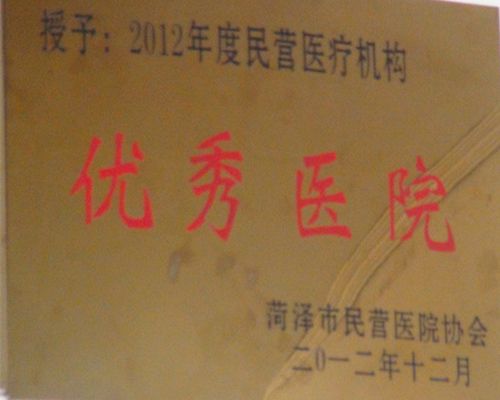 授予：2012年度民营医疗机构
优秀医院
菏泽市民营医院协会
二〇一二年十二月